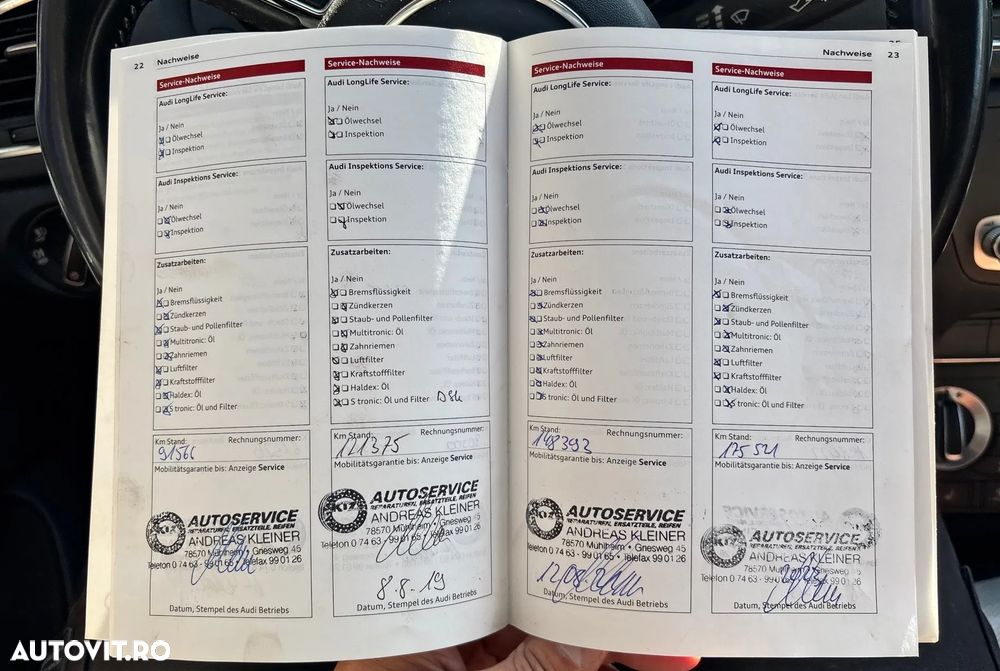 22 Nachweise
Service-Nachweise
Audi LongLife Service:
Ja / Nein
Ölwechsel
Inspektion
Audi Inspektions Service:
Ja / Nein
Ölwechsel
Inspektion
Zusatzarbeiten:
Ja / Nein
Bremsflüssigkeit
Zündkerzen
Staub- und Pollenfilter
Multitronic: Öl
Zahnriemen
Luftfilter
Kraftstofffilter
Haldex: Öl
S tronic: Öl und Filter
Km Stand: Rechnungsnummer:
Mobilitätsgarantie bis: Anzeige Service
AUTOSERVICE
REPARATUREN, ERSATZTEILE, REIFEN
ANDREAS KLEINER
78570 Mühlheim • Griesweg 45
Telefon 0 74 63 - 99 01 65 • Telefax 99 01 26
Datum, Stempel des Audi Betriebs
Service-Nachweise
Audi LongLife Service:
Ja / Nein
Ölwechsel
Inspektion
Audi Inspektions Service:
Ja / Nein
Ölwechsel
Inspektion
Zusatzarbeiten:
Ja / Nein
Bremsflüssigkeit
Zündkerzen
Staub- und Pollenfilter
Multitronic: Öl
Zahnriemen
Luftfilter
Kraftstofffilter
Haldex: Öl
S tronic: Öl und Filter
Km Stand: Rechnungsnummer:
121375
Mobilitätsgarantie bis: Anzeige Service
KIZ AUTOSERVICE
REPARATUREN, ERSATZTEILE, REIFEN
ANDREAS KLEINER
78570 Mühlheim • Griesweg 45
Telefon 0 74 63 - 99 01 65 • Telefax 99 01 26
8.8.19
Datum, Stempel des Audi Betriebs
Nachweise 23
Service-Nachweise
Audi LongLife Service:
Ja / Nein
Ölwechsel
Inspektion
Audi Inspektions Service:
Ja / Nein
Ölwechsel
Inspektion
Zusatzarbeiten:
Ja / Nein
Bremsflüssigkeit
Zündkerzen
Staub- und Pollenfilter
Multitronic: Öl
Zahnriemen
Luftfilter
Kraftstofffilter
Haldex: Öl
S tronic: Öl und Filter
Km Stand: Rechnungsnummer:
148393
Mobilitätsgarantie bis: Anzeige Service
KIZ AUTOSERVICE
REPARATUREN, ERSATZTEILE, REIFEN
ANDREAS KLEINER
78570 Mühlheim • Griesweg 45
Telefon 0 74 63 - 99 01 65 • Telefax 99 01 26
Datum, Stempel des Audi Betriebs
Service-Nachweise
Audi LongLife Service:
Ja / Nein
Ölwechsel
Inspektion
Audi Inspektions Service:
Ja / Nein
Ölwechsel
Inspektion
Zusatzarbeiten:
Ja / Nein
Bremsflüssigkeit
Zündkerzen
Staub- und Pollenfilter
Multitronic: Öl
Zahnriemen
Luftfilter
Kraftstofffilter
Haldex: Öl
S tronic: Öl und Filter
Km Stand: Rechnungsnummer:
Mobilitätsgarantie bis: Anzeige Service
AUTOSERVICE
REPARATUREN, ERSATZTEILE, REIFEN
ANDREAS KLEINER
78570 Mühlheim • Griesweg
Telefon 0 74 63 - 99 01 65 • Telefax 99 01 26
Datum, Stempel des Audi Betriebs
AUTOVIT.RO